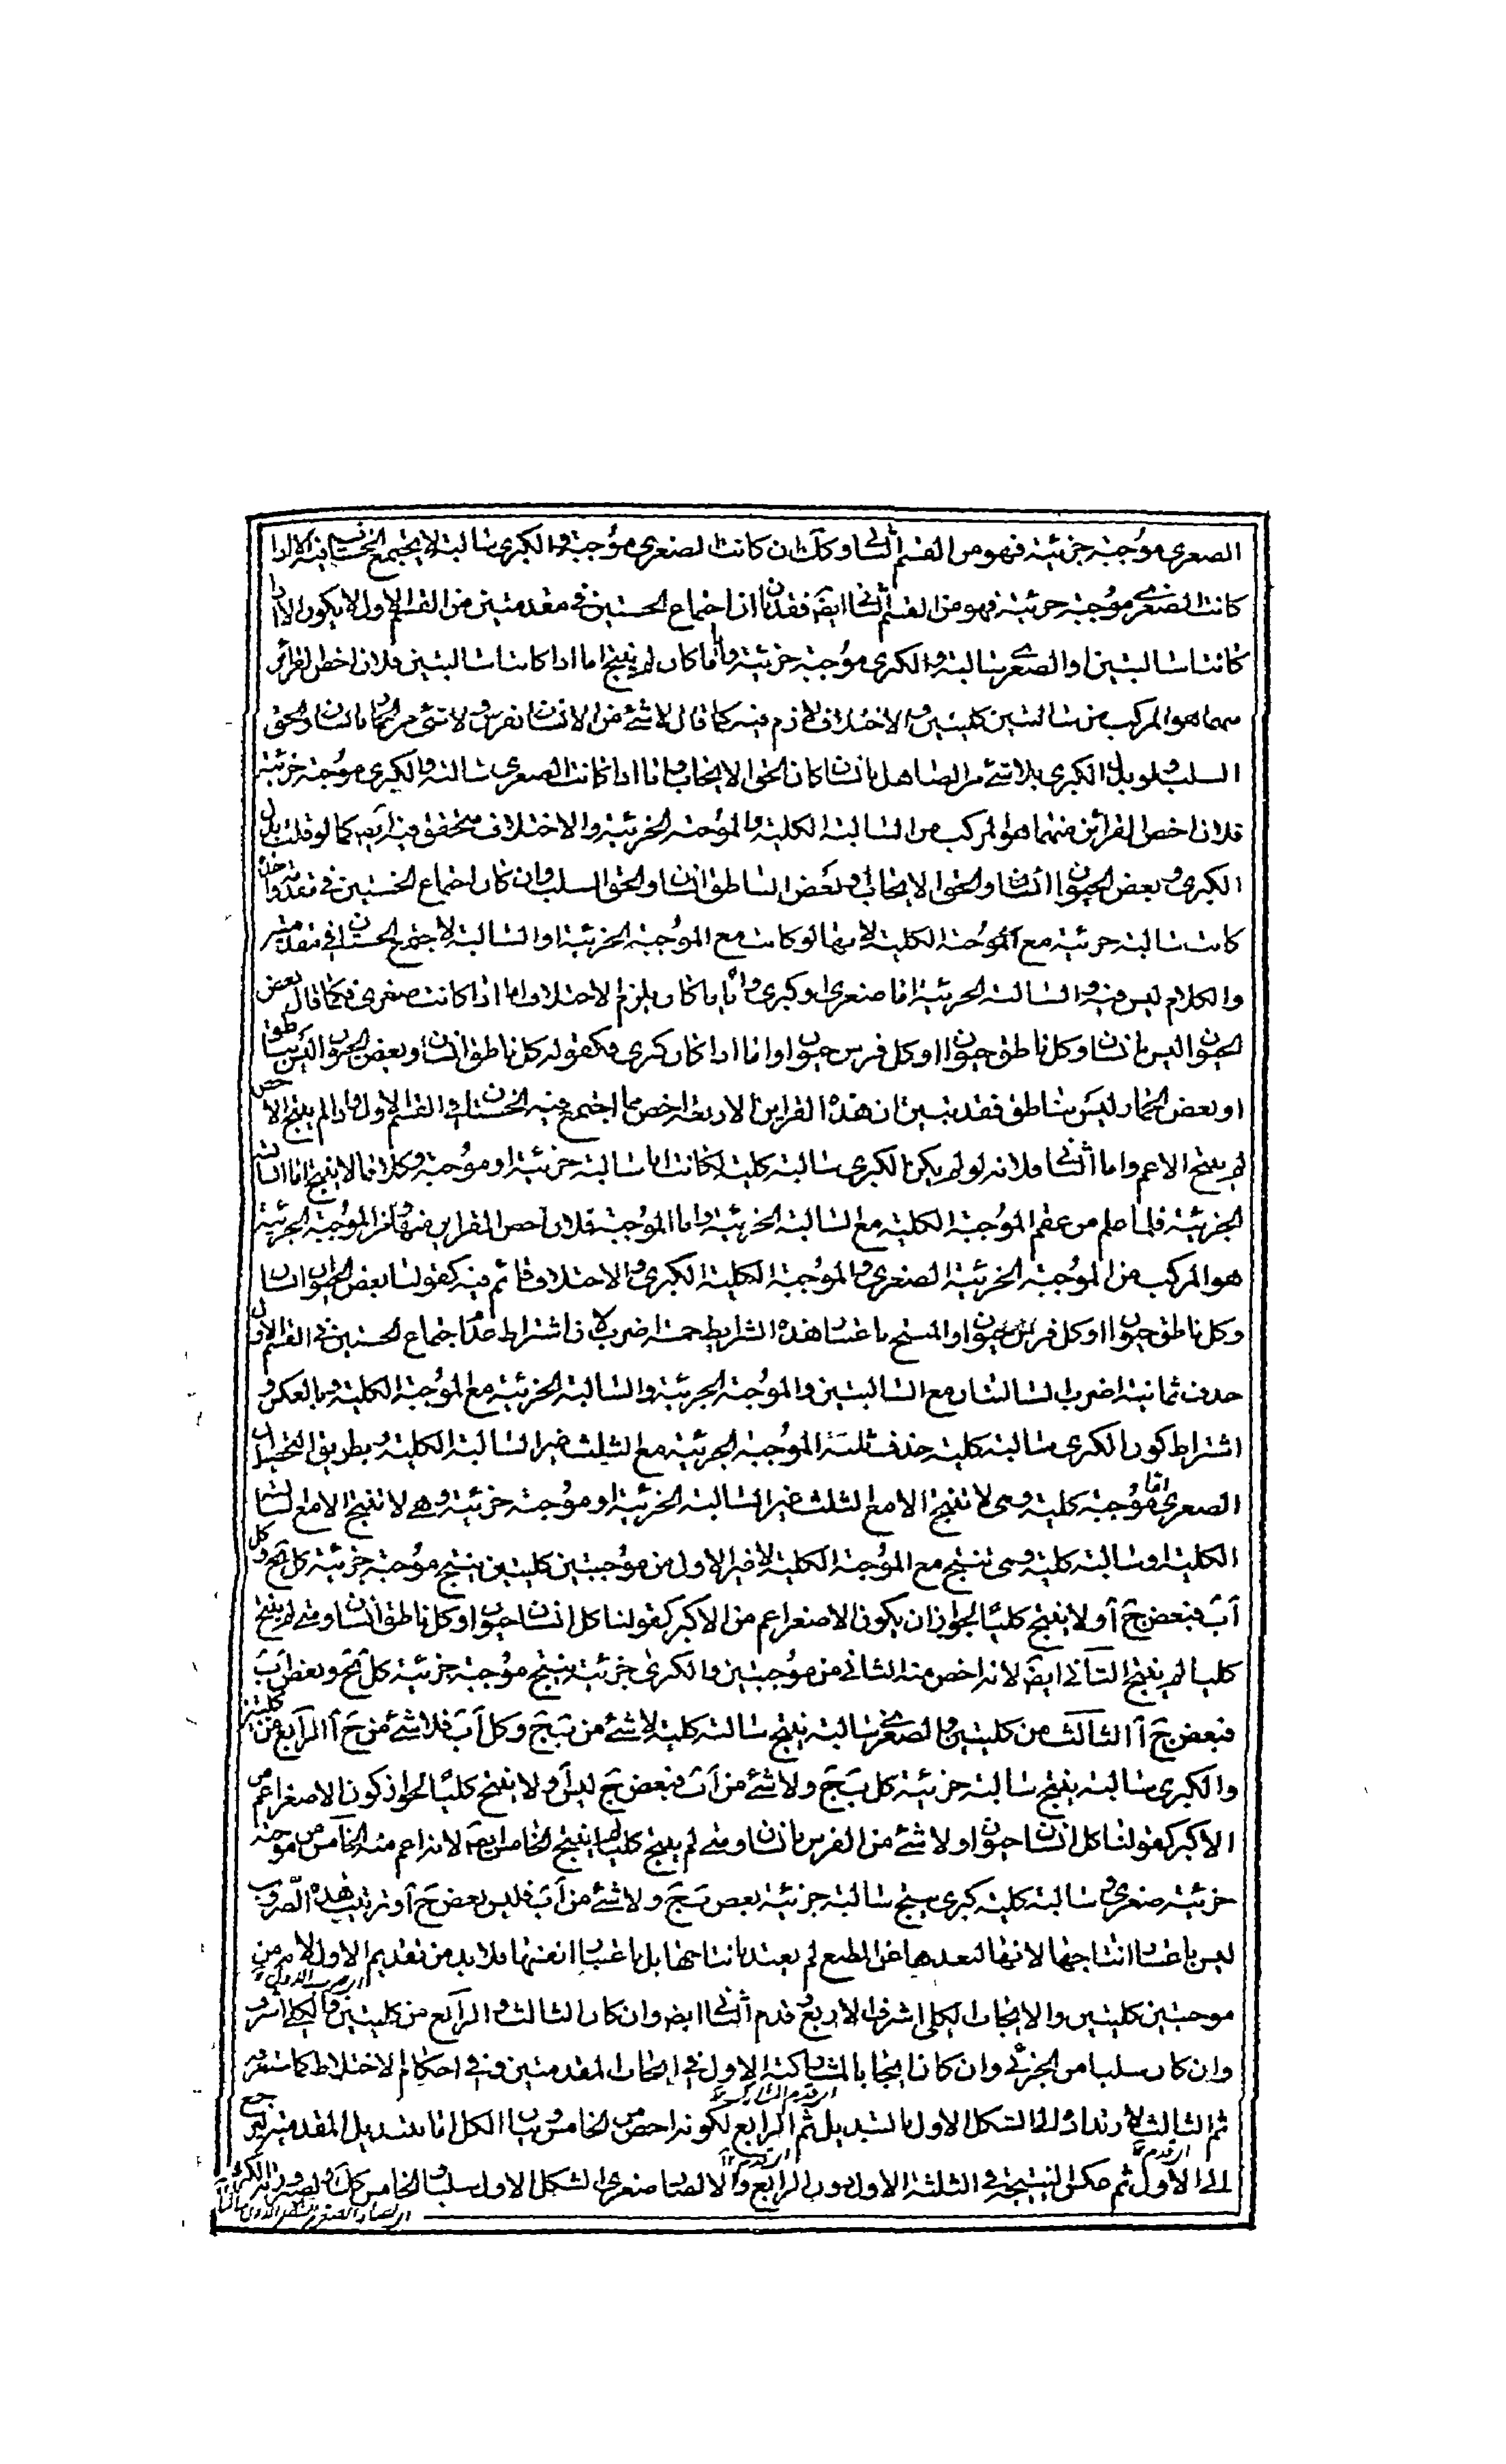 الصغرى موجبة جزئية فهو من القسم الثانى وكك ان كانت الصغرى موجبة والكبرى سالبة لا يجتمع الخستان فيه الا اذا
كانت الصغرى موجبة جزئية فهو من القسم الثانى ايضا فقد بان ان اجتماع الخستين فى مقدمتين من القسم الاول لا يكون الا اذا
كانتا سالبتين او الصغرى سالبة والكبرى موجبة جزئية واياما كان لم ينتج اما اذا كانتا سالبتين فلان اخص القرائن
منهما هو المركب من سالبتين كليتين والاختلاف لازم فيه كما قال لا شئ من الانسان بفرس ولا شئ من الحمار بانسان والحق
السلب ولو بدل الكبرى بلا شئ من الصاهل بانسان كان الحق الايجاب واما اذا كانت الصغرى سالبة والكبرى موجبة جزئية
فلان اخص القرائن منهما هو المركب من السالبة الكلية والموجبة الجزئية والاختلاف متحقق فيه ايضا كما لو قلت بدل
الكبرى وبعض الحيوان انسان والحق الايجاب او بعض الناطق انسان والحق السلب وان كان اجتماع الخستين فى مقدمة واحدة
كانت سالبة جزئية مع الموجبة الكلية لانها لو كانت مع الموجبة الجزئية او السالبة لاجتمع الخستان فى مقدمتين
والكلام ليس فيه والسالبة الجزئية اما صغرى او كبرى واياما كان يلزم الاختلاف اما اذا كانت صغرى فكما قال بعض
الحيوان ليس بانسان وكل ناطق حيوان او كل فرس حيوان واما اذا كان كبرى فكقوله كل ناطق انسان وبعض الحيوان ليس بناطق
او بعض الحمار ليس بناطق فقد تبين ان هذه القراين الاربعة اخص مما اجتمع فيه الخستان فى القسم الاول واذا لم ينتج الاخص
لم ينتج الاعم واما الثانى فلانه لو لم يكن الكبرى سالبة كلية لكانت اما سالبة جزئية او موجبة وكلاهما لا ينتج اما السالبة
الجزئية فلما علم من عقم الموجبة الكلية مع السالبة الجزئية واما الموجبة فلان اخص القراين منها من الموجبة الجزئية
هو المركب من الموجبة الجزئية الصغرى والموجبة الكلية الكبرى والاختلاف قائم فيه كقولنا بعض الحيوان انسان
وكل ناطق حيوان او كل فرس حيوان والمنتج باعتبار هذه الشرايط خمسة اضرب لان اشتراط عدم اجتماع الخستين فى القسم الاول
حذف ثمانية اضرب السالبتان مع السالبتين والموجبة الجزئية والسالبة الجزئية مع الموجبة الكلية وبالعكس و
اشتراط كون الكبرى سالبة كلية حذف ثلثة الموجبة الجزئية مع الثلث غير السالبة الكلية وبطريق التحصيل ان
الصغرى اما موجبة كلية وهى لا تنتج الا مع الثلث غير السالبة الجزئية او موجبة جزئية وهى لا تنتج الا مع السالبة
الكلية او سالبة كلية وهى تنتج مع الموجبة الكلية لا غير الاول من موجبتين كليتين ينتج موجبة جزئية كل ب ج وكل
آ ب فبعض ج آ ولا ينتج كليا لجواز ان يكون الاصغر اعم من الاكبر كقولنا كل انسان حيوان وكل ناطق انسان ومتى لم ينتج
كليا لم ينتج الثانى ايضا لانه اخص منه الثانى من موجبتين والكبرى جزئية ينتج موجبة جزئية كل ب ج وبعض آ ب
فبعض ج آ الثالث من كليتين والصغرى سالبة ينتج سالبة كلية لا شئ من ب ج وكل آ ب فلا شئ من ج آ الرابع من كليتين
والكبرى سالبة ينتج سالبة جزئية كل ب ج ولا شئ من آ ب فبعض ج ليس آ ولا ينتج كليا لجواز كون الاصغر اعم من
الاكبر كقولنا كل انسان حيوان ولا شئ من الفرس بانسان ومتى لم ينتج كليا لم ينتج الخامس ايضا لانه اعم منه الخامس من موجبة
جزئية صغرى وسالبة كلية كبرى ينتج سالبة جزئية بعض ب ج ولا شئ من آ ب فليس بعض ج آ وترتيب هذه الضروب
ليس باعتبار انتاجها لانها لبعدها عن الطبع لم يعتد بانتاجها بل باعتبار انفسها فلا بد من تقديم الاول لانه من
اى ضرب الاول
موجبتين كليتين والايجاب الكلى اشرف الاربع وقدم الثانى ايضا وان كان الثالث والرابع من كليتين والكلى اشرف
وان كان سلبا من الجزئى وان كان ايجابا لمشاركته الاول فى ايجاب المقدمتين وفى احكام الاختلاط كما ستعرفه
اى قدم الثالث
ثم الثالث لارتداده الى الشكل الاول بالتبديل ثم الرابع لكونه اخص من الخامس وبيان الكل اما بتبديل المقدمتين ليرجع
اى قدم
اى قدم
الى الاول ثم عكس النتيجة فى الثلثة الاول دون الرابع والا لصار صغرى الشكل الاول سلبا والخامس كذلك